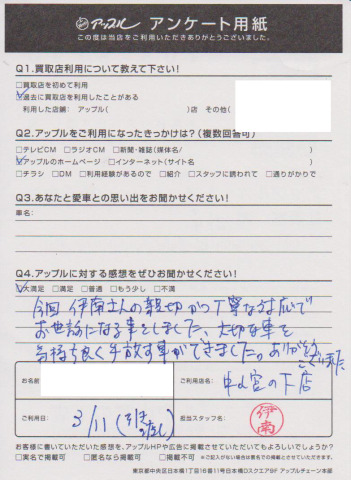 アップル アンケート用紙
この度は当店をご利用いただきありがとうございました。
Q1.買取店利用について教えて下さい!
□買取店を初めて利用
☑過去に買取店を利用したことがある
利用した店舗: アップル( )店 その他(
Q2.アップルをご利用になったきっかけは?(複数回答可)
□テレビCM □ラジオCM □新聞・雑誌(媒体名/ )
☑アップルのホームページ □インターネット(サイト名 )
□チラシ □DM □利用経験があるので □紹介 □スタッフに誘われて □通りがかりで
Q3.あなたと愛車との思い出をお聞かせください!
車名:
Q4.アップルに対する感想をぜひお聞かせください!
☑大満足 □満足 □普通 □もう少し □不満
今回 伊南さんの親切かつ丁寧な対応で
お世話になる事をしました、大切な車を
気持ち良く手放す事ができました。ありがとうございました
お名前
ご利用店名: 中山宮の下店
ご利用日: 3/11
担当スタッフ名: 伊南
お客様に書いていただいた感想を、アップルHPや広告に掲載させていただいてもよろしいでしょうか?
□実名で掲載可 □匿名なら掲載可 □掲載不可 ※ご記入がない場合は匿名での掲載とさせていただきます。
東京都中央区日本橋1丁目16番11号日本橋Dスクエア9F アップルチェーン本部